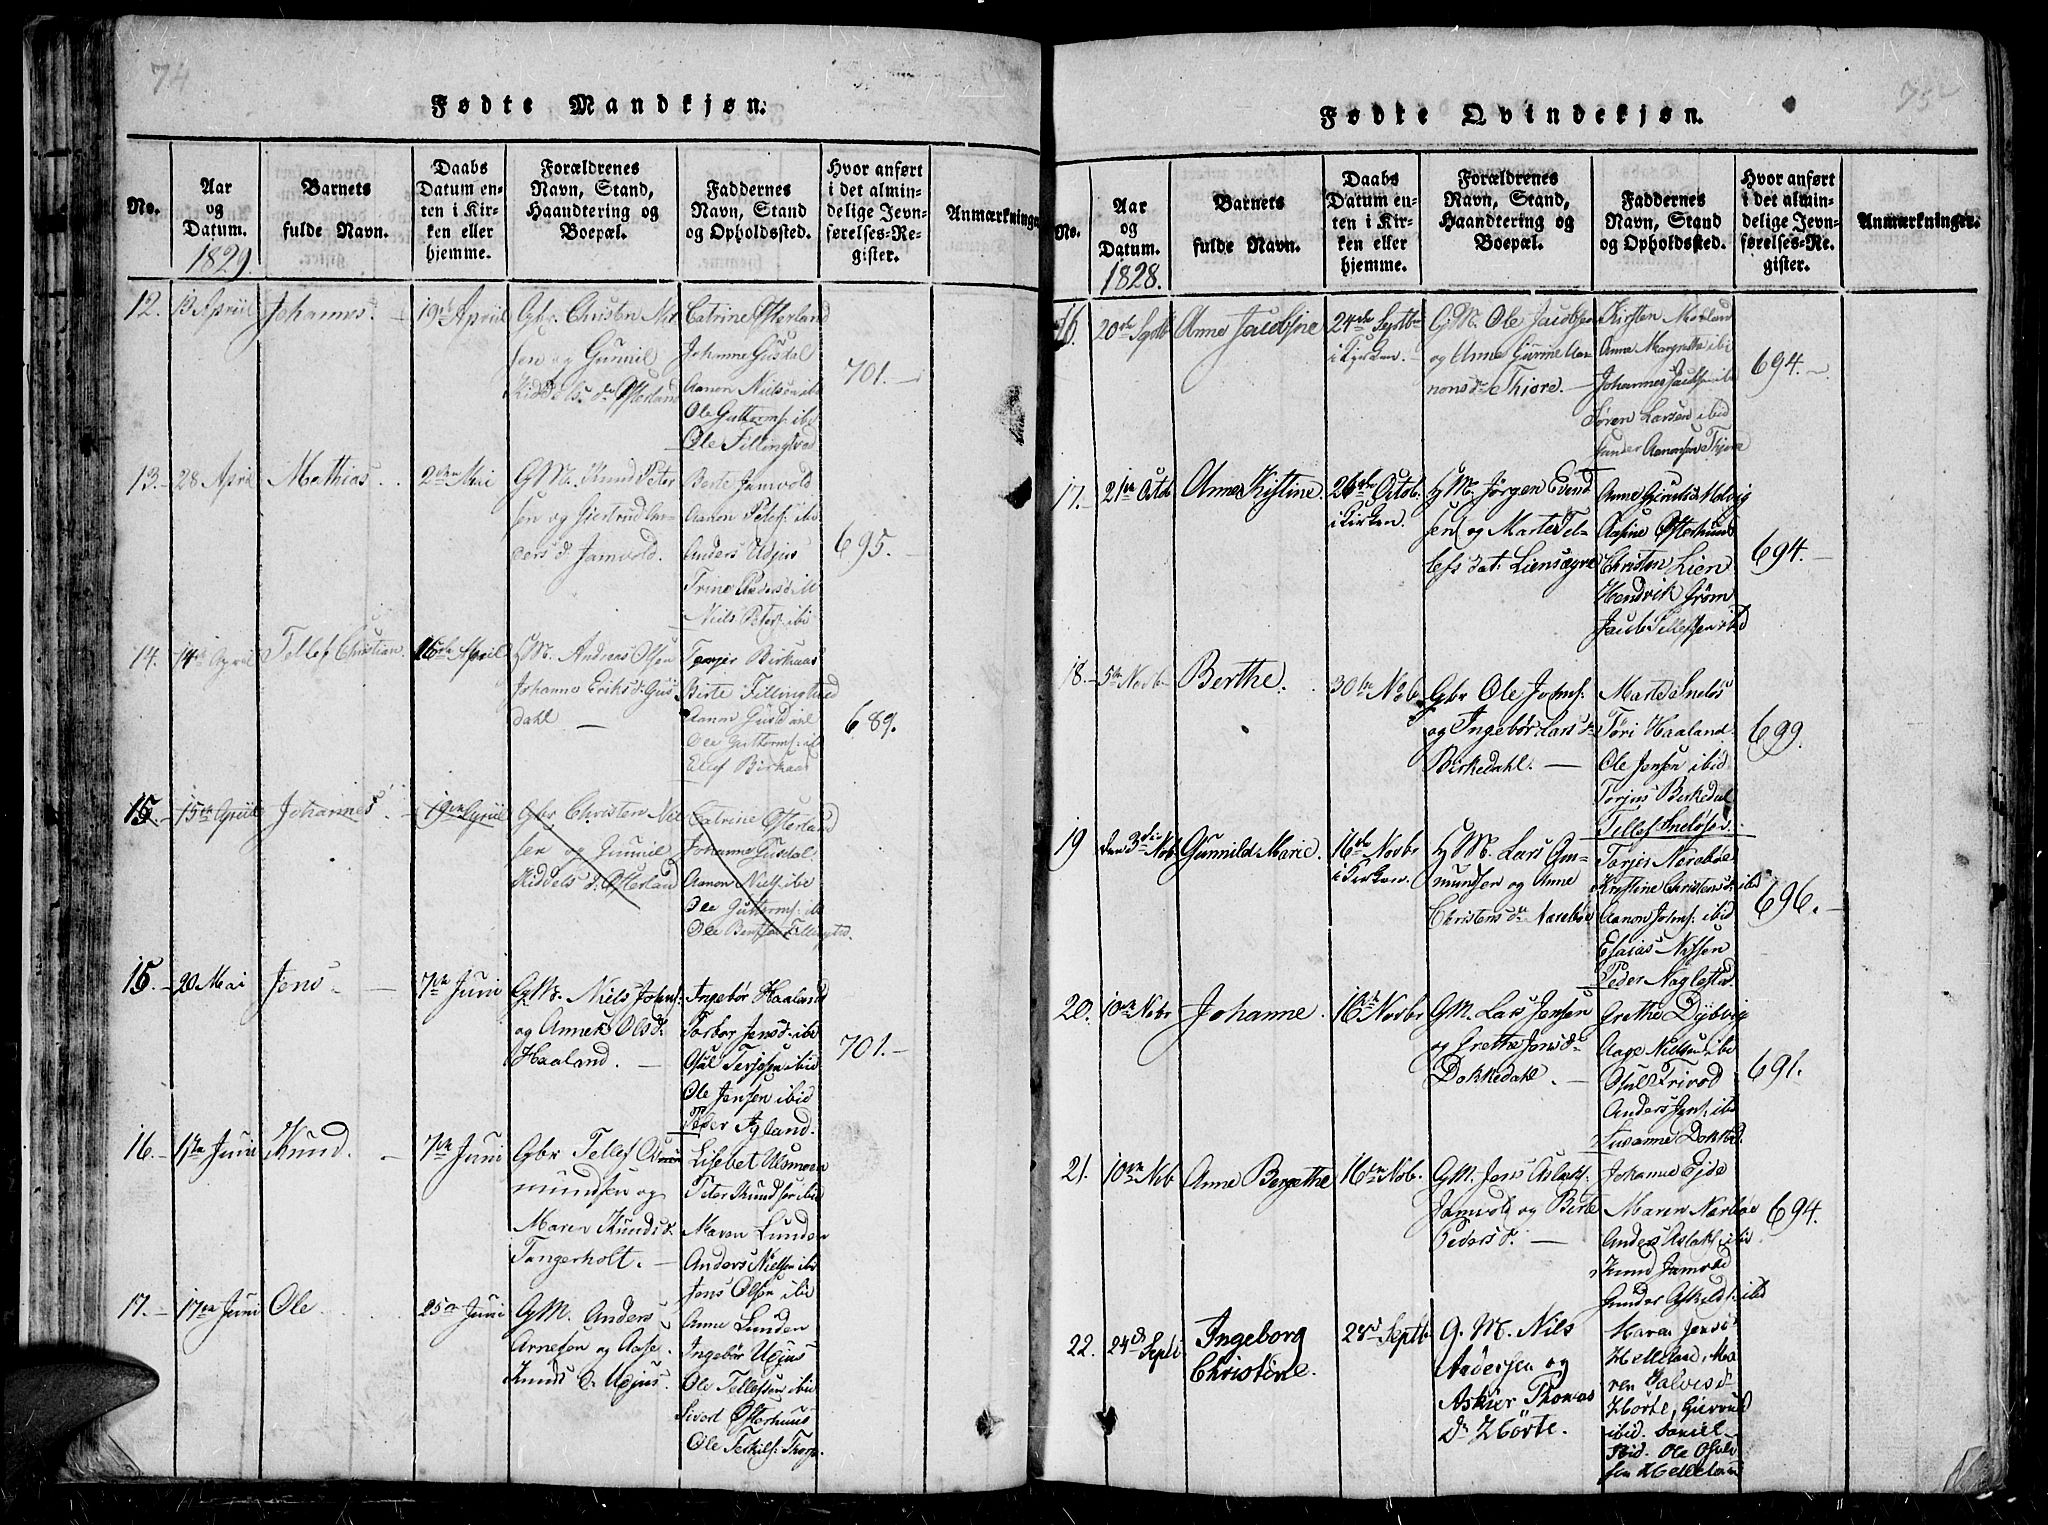 74
Fødte Mandkjøn.
No.
Aar
og
Datum.
1829
Barnets
fulde Navn.
Daabs
Datum en-
ten i Kir-
ken eller
hjemme.
Forældrenes
Navn, Stand,
Haandtering og
Boepæl.
Faddernes
Navn, Stand
og Opholdssted.
Hvor anført
i det almin-
delige Jevn-
førelses-Re-
gister.
Anmærkninge
12.
13 Apriil
Johannes
19de Apriil
Gbr. Christen Niel
sen og Gunnil
Kiddels d. Østerland
Catrine Østerland
Johanne Gusdal
Aanon Nielsen ibi
Ole Guttorms. ibi
Ole Fillingsted
701.
13.
28 April
Mathias
2den Mai
GM. Knud Peter
sen og Giertrud An
ders d. Jamvold.
Berte Jamvold
Aanon Peters. ibi
Anders Udjus
Trine Anders d.
Niels Peters. ibi
695.
14.
14de April
Tellef Christian.
16de April
GM. Andreas Olsen
Johanne Eriks d. Gus
dahl
Birkaas
Birte Fillingsted
Aanon Gusdahl
Ole Guttorms. ib
Ellef Birkaas
689.
15.
15de Apriil
Johannes
19de Apriil
Gbr Christen Niel
sen og Gunnil
Kiddels d. Østerland
Catrine Østerland
Johanne Gusdal
Aanon Niels. ibi
Ole Guttorms. ib
Ole Bentsen Fillingsted.
15.
20 Mai
Jens
7de Juni
GM. Niels Johns.
og Anne Ols d.
Haaland.
Ingebør Haaland
Torbor Jens d. ibi
Osul Terjesen ibid
Ole Jensen ibid
Peder Igland.
701.
16.
1ste Juni
Knud.
7de Juni
Gbr Tellef
mundsen og
Maren Knuds d.
Tangerholt.
Lisebet Ulsmoen
Peter Knudsen ibid
Maren Lunden
Anders Nielsen ibi
Jens Olsen ibid
17.
17de Juni
Ole
25de Juni
GM. Anders
Arnesen og Aase
Knuds d. Udjus.
Anne Lunden
Ingebør Udjus
Ole Tellefsen ibid
Sivert Østerhuus
Ole Terkils.
75
Fødte Qvindekjøn.
No.
Aar
og
Datum.
1828.
Barnets
fulde Navn.
Daabs
Datum en-
ten i Kir-
ken eller
hjemme.
Forældrenes
Navn, Stand,
Haandtering og
Boepæl.
Faddernes
Navn, Stand
og Opholdssted.
Hvor anført
i det almin-
delige Jevn-
førelses-Re-
gister.
Anmærkninger.
16.
20de Septb
Anne Jacobine
24de Septbr
i Kirken.
GM. Ole Jacobsen
og Anne Gurine Aa
nons d. Thiøre.
Kirsten Morland
Anne Margrethe ibi
Johannes Jacobs. ibi
Søren Larsen ibid
Gunder Aanonsen Thjøre
694.
17.
21de Octb
Anne Kistine.
26de Octob.
i Kirken.
GM. Jørgen Evend
sen og Marte Tel-
lefs dat. Liensagre
Anne Melvig
Aasine Østerhuus
Christen Lien
Hendrik Strøm
Jacob Tellefsen ibid
694.
18.
5te Novb
Berthe.
30te Nobr
Gbr Ole Johns.
og Ingebør Lars d.
Birkedahl.
Marte Sneløs
Tøri Haaland
Ole Jensen ibid
Torjus Birkedal
Tellef Sneløsen.
699.
19
den 3die Nob
Gunnild Marie.
16de Novbr
i Kirken.
GM. Lars Om-
mundsen og Anne
Christens d. Narebøe
Torjer Narebøe
Kristine Christens d. ibid
Aanon Johns. ibid
Esaias Nilssen
Peder Naglestad.
696.
20.
10de Nobr
Johanne.
16de Novbr
GM. Lars Jensen
og Grethe Jens d.
Dokkedahl.
Grethe Dybvig
Aage Nielsen ibi
Osul Trivod
Anders Jens. ibi
Susanne Dokked.
691.
21.
10de Nob
Anne Bergethe
16de Nob.
GM. Jens Aslaks.
Jamvold og Birte
Peders d.
Johanne Eide
Maren Narbøe
Anders Aslaks. ibi
Knud Jamvold
Gunder Askilds. ibid
694.
22.
24de Septb
Ingeborg
Christine.
28d Septb
G. M. Nils
Andersen og
Asløer Thomas
d. Hørte.
Maren Jens d
Helleland, Ma
ren Salves d
Hørte, Giertrud
ibid. Daniel
ibid. Ole Osuls
sen Helleland